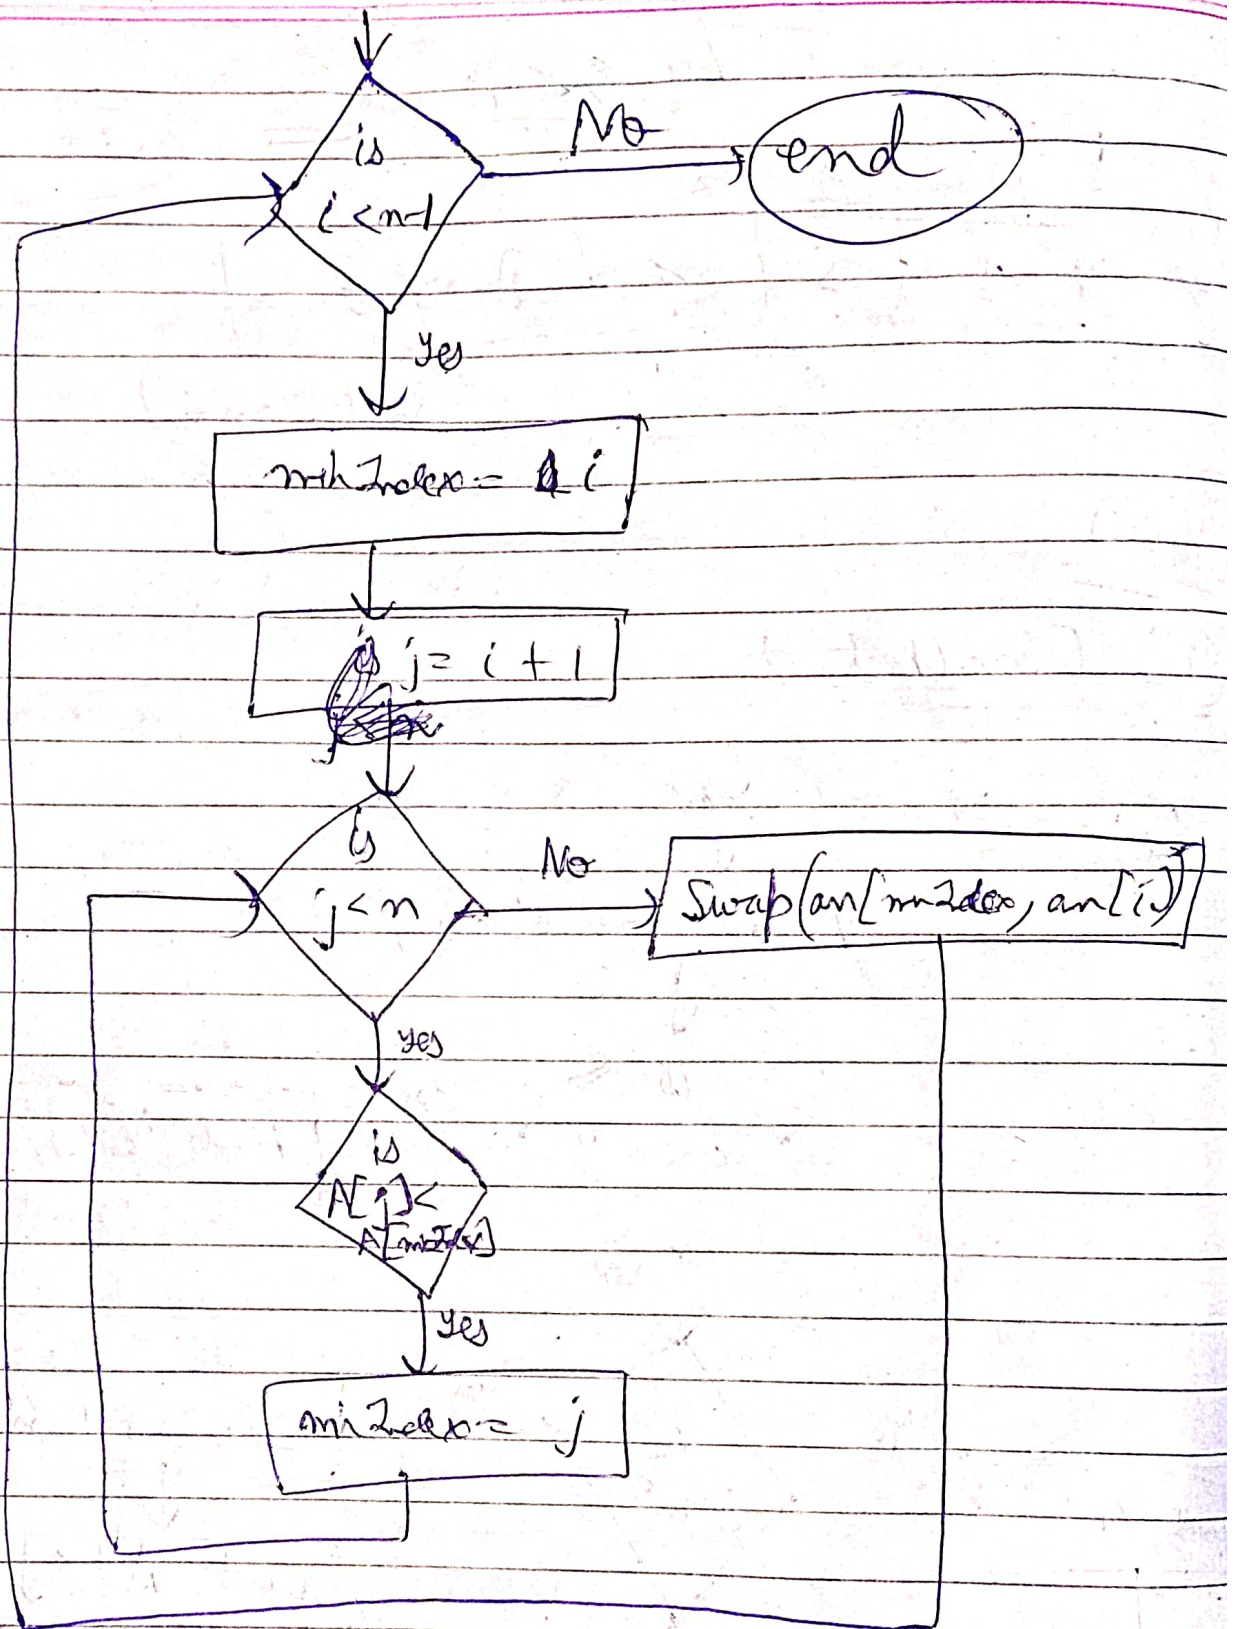 is
i < n-1
No
end
Yes
minIndex = i
j = i + 1
is
j < n
No
Swap(arr[minIndex, arr[i])
Yes
is
A[j] <
A[minIndex]
Yes
minIndex = j